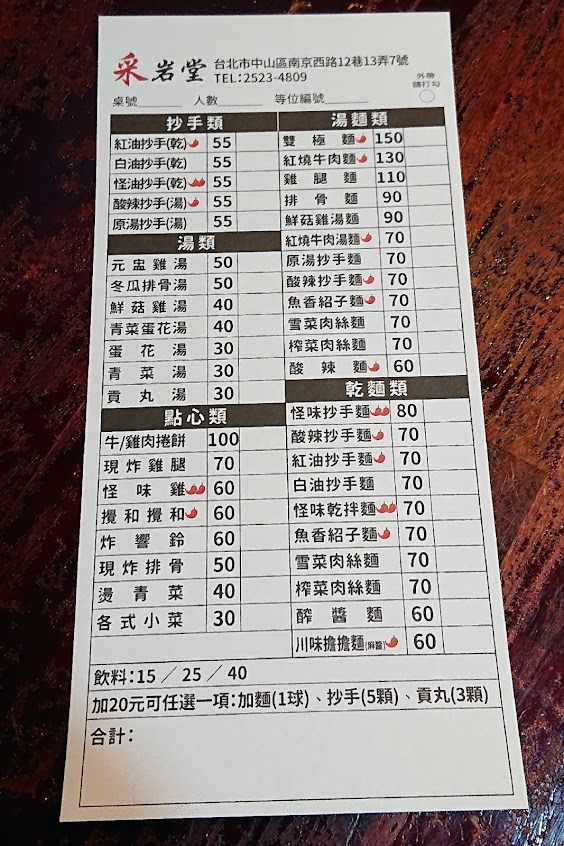 采岩堂 台北市中山區南京西路12巷13弄7號
TEL:2523-4809
外帶
請打勾
桌號 人數 等位編號
抄手類
紅油抄手(乾) 55
白油抄手(乾) 55
怪油抄手(乾) 55
酸辣抄手(湯) 55
原湯抄手(湯) 55
湯類
元盅雞湯 50
冬瓜排骨湯 50
鮮菇雞湯 40
青菜蛋花湯 40
蛋花湯 30
青菜湯 30
貢丸湯 30
點心類
牛/雞肉捲餅 100
現炸雞腿 70
怪味雞 60
攪和攪和 60
炸響鈴 60
現炸排骨 50
燙青菜 40
各式小菜 30
湯麵類
雙極麵 150
紅燒牛肉麵 130
雞腿麵 110
排骨麵 90
鮮菇雞湯麵 90
紅燒牛肉湯麵 70
原湯抄手麵 70
酸辣抄手麵 70
魚香紹子麵 70
雪菜肉絲麵 70
榨菜肉絲麵 70
酸辣麵 60
乾麵類
怪味抄手麵 80
酸辣抄手麵 70
紅油抄手麵 70
白油抄手麵 70
怪味乾拌麵 70
魚香紹子麵 70
雪菜肉絲麵 70
榨菜肉絲麵 70
醡醬麵 60
川味擔擔麵(麻醬) 60
飲料:15/25/40
加20元可任選一項:加麵(1球)、抄手(5顆)、貢丸(3顆)
合計: